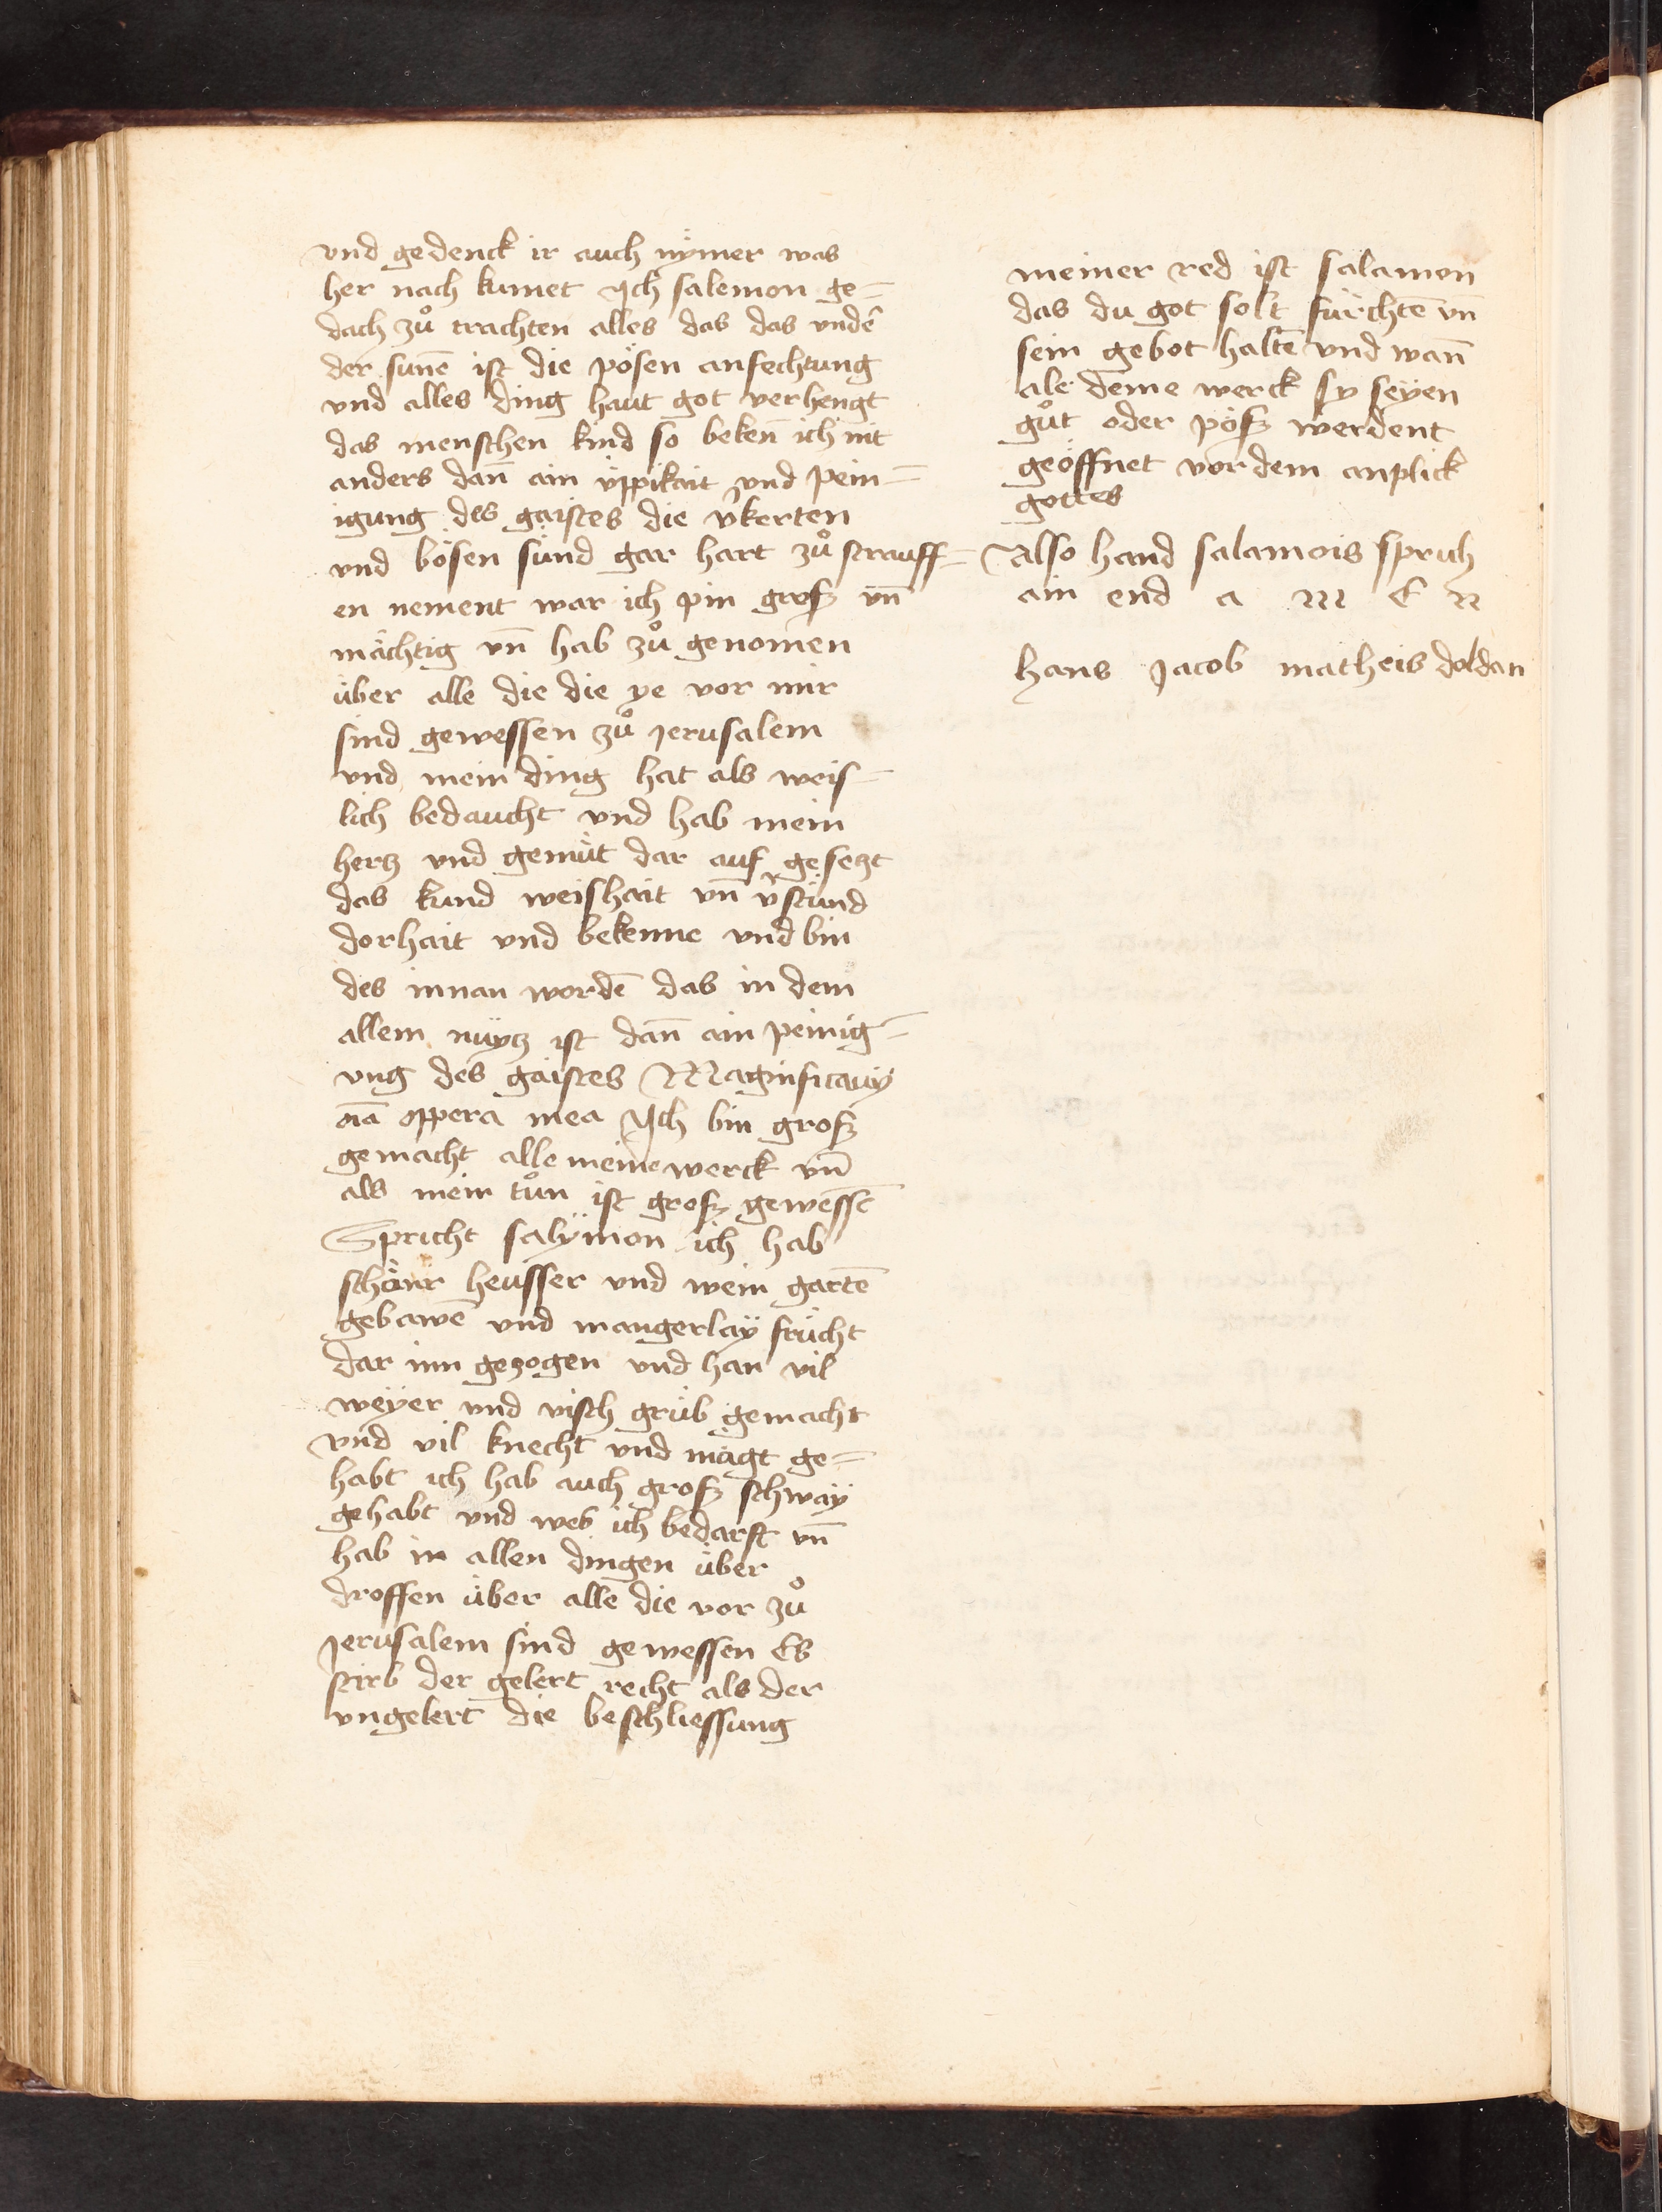 vnd gedenck ir auch nÿmer was
her nach kumet Ich salemon ge=
dach zů trachten alles das das vndē
der sunē ist die pösen anfechtung
vnd alles ding haut got verhengt
das menschen kind so bekeñ ich nit
anders dañ ain üppikait vnd pein=
igung des gaistes die v̄kerten
vnd bösen sünd gar hart zů strauff=
en nement war ich pin grosz vñ
mächtig vñ hab zů genomen
über alle die die ye vor mir
sind gewessen zů Jerusalem
vnd mein ding hat als weis=
lich bedaucht vnd hab mein
hertz vnd gemüt dar auf gesetzt
das kund weishait vñ v̄stünd
dorhait vnd bekenne vnd bin
des innan wordē das in dem
allem nüytz ist dañ ain peinig=
ung des gaistes Magnificauÿ
oīa oppera mea Ich bin grosz
gemacht alle meine werck vñ
als mein tůn ist grosz gewessē
Spricht salÿmon ich hab
schönr heusser vnd wein gartē
gebawē vnd mangerlaÿ frücht
dar inn gezogen vnd han vil
weÿer vnd visch grüb gemacht
vnd vil knecht vnd mägt ge=
habt ich hab auch grosz schwaÿ
gehabt vnd wes ich bedarft vñ
hab in allen dingen über
droffen über alle die vor zů
Jerusalem sind gewessen Es
stirb der gelert recht als der
vngelert die beschliessung
meiner red ist salamon
das du got solt fürchtē vñ
sein gebot haltē vnd wañ
ale deine werck sy seÿen
gůt oder pösz werdent
geöffnet vor dem anplick
gottes
Also hand salamois spruh
ain end a m e n
hans Jacob matheis doldan